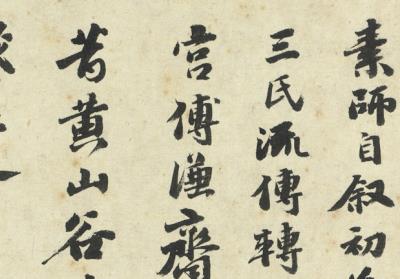 素師自叙初
三氏流傳轉
宫傅謙齋
昔黄山谷